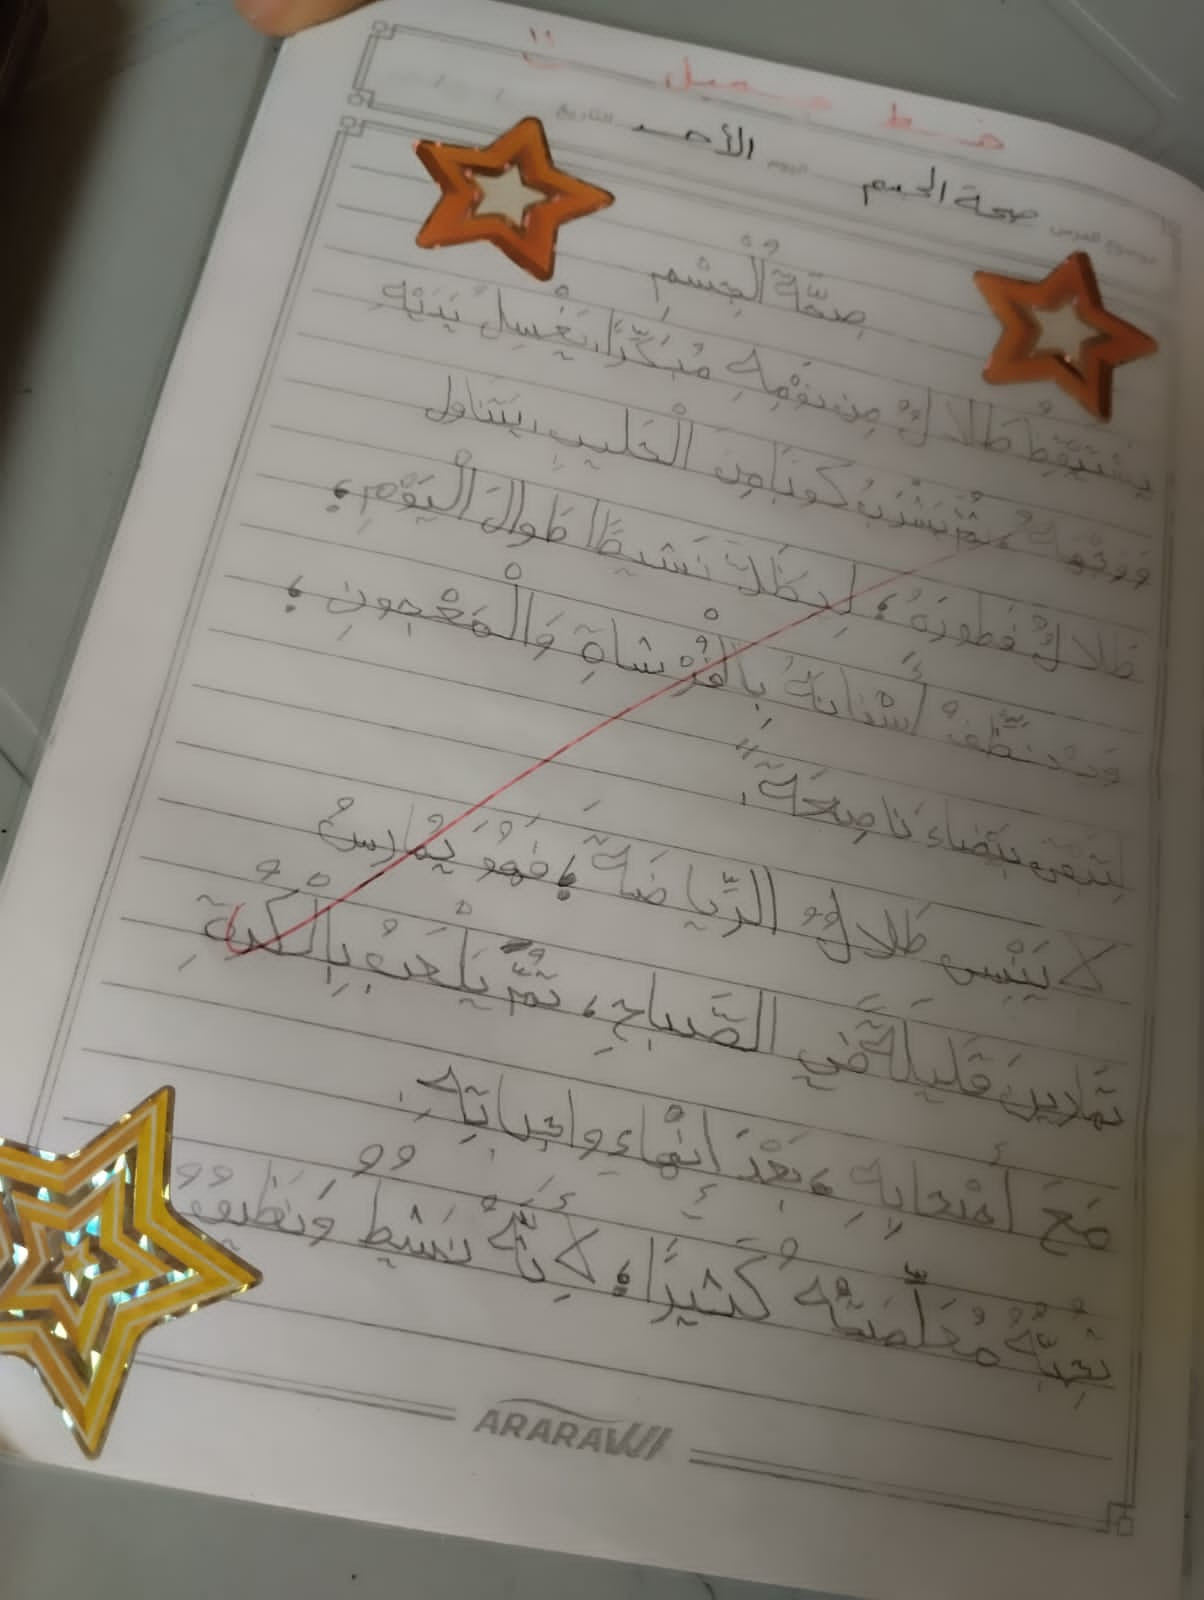 خط جميل
موضوع الدرس صحة الجسم اليوم الأحد التاريخ
صِحَّةُ الْجِسْمِ
يَسْتَيْقِظُ طَلَالٌ مِن نَوْمِهِ مُبَكِّرًا، يَغْسِلُ يَدَيْهِ
وَوَجْهَهُ، ثُمَّ يَشْرَبُ كُوبًا مِنَ الْحَلِيبِ، يَتَنَاوَل
طَلَالٌ فَطُورَهُ؛ لِيَظَلَّ نَشِيطًا طَوَالَ الْيَوْمِ،
وَيُنَظِّفُ أَسْنَانَهُ بِالْفُرْشَاةِ وَالْمَعْجُونِ،
لِتَبْقَى بَيْضَاءَ نَاصِعَةً.
لَا يَنْسَى طَلَالٌ الرِّيَاضَةَ؛ فَهُوَ يُمَارِسُ
تَمَارِينَ قَلِيلَةً فِي الصَّبَاحِ، ثُمَّ يَلْعَبُ بِالْكُرَةِ
مَعَ أَصْحَابِهِ، بَعْدَ انْتِهَاءِ وَاجِبَاتِهِ.
يُحِبُّهُ مُعَلِّمُهُ كَثِيرًا؛ لِأَنَّهُ نَشِيطٌ وَنَظِيفٌ
ARARAWI